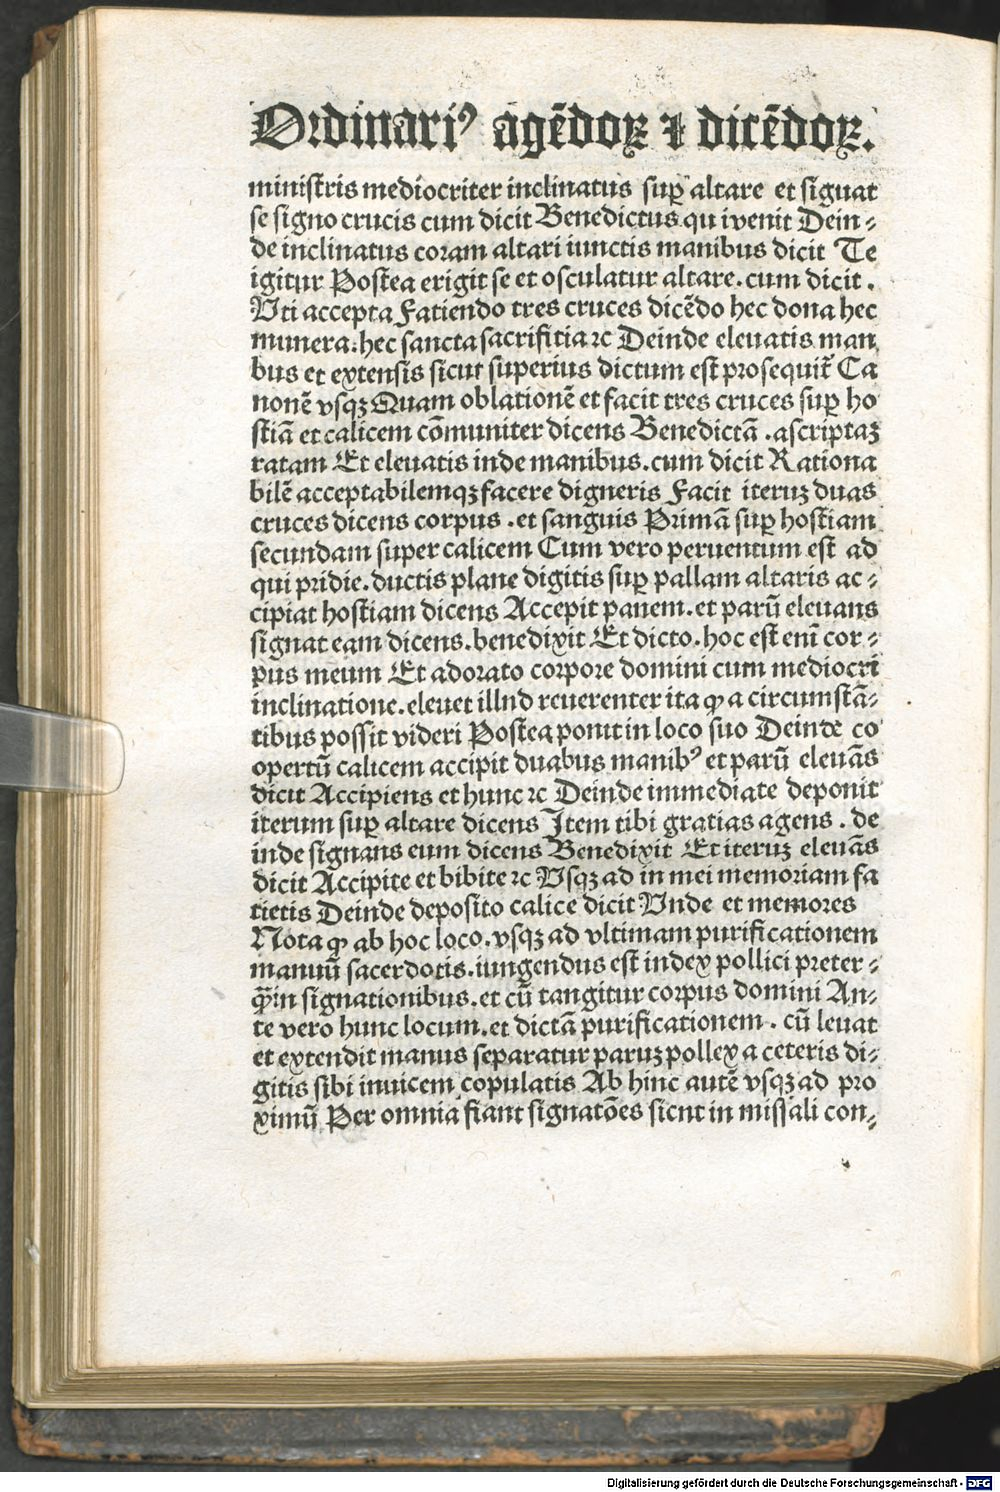 Ordinariꝰ agēdoꝝ ⁊ dicēdoꝝ.
ministris mediocriter inclinatus suꝑ altare et signat
se signo crucis cum dicit Benedictus qui venit Dein⸗
de inclinatus coram altari iunctis manibus dicit Te
igitur Postea erigit se et osculatur altare. cum dicit.
Uti accepta Fatiendo tres cruces dicēdo hec dona hec
munera: hec sancta sacrifitia ⁊c Deinde eleuatis man
bus et extensis sicut superius dictum est prosequit᷑ Ca
nonē vsqꝫ Quam oblationē et facit tres cruces suꝑ ho
stiā et calicem cōmuniter dicens Benedictā. ascriptaꝫ
ratam Et eleuatis inde manibus. cum dicit Rationa
bilē acceptabilemqꝫ facere digneris Facit iteruꝫ duas
cruces dicens corpus. et sanguis Primā suꝑ hostiam
secundam super calicem Cum vero peruentum est ad
qui pridie. ductis plane digitis suꝑ pallam altaris ac⸗
cipiat hostiam dicens Accepit panem. et parū eleuans
signat eam dicens. benedixit Et dicto. hoc est enī cor⸗
pus meum Et adorato corpore domini cum mediocri
inclinatione. eleuet illnd reuerenter ita ꝙ a circumstā⸗
tibus possit videri Postea ponit in loco suo Deinde co
opertū calicem accipit duabus manibꝰ et parū eleuās
dicit Accipiens et hunc ⁊c Deinde immediate deponit
iterum suꝑ altare dicens Item tibi gratias agens. de
inde signans eum dicens Benedixit Et iteruꝫ eleuās
dicit Accipite et bibite ⁊c Usqꝫ ad in mei memoriam fa
tietis Deinde deposito calice dicit Unde et memores
Nota ꝙ ab hoc loco. vsqꝫ ad vltimam purificationem
manuū sacerdotis. iungendus est index pollici preter⸗
ꝙ̄ in signationibus. et cū tangitur corpus domini An⸗
te vero hunc locum. et dictā purificationem. cū leuat
et extendit manus separatur paruꝫ pollex a ceteris di⸗
gitis sibi inuicem copulatis Ab hinc autē vsqꝫ ad pro
ximū Per omnia fiant signatōes sicnt in missali con⸗
Digitalisierung gefördert durch die Deutsche Forschungsgemeinschaft - DFG